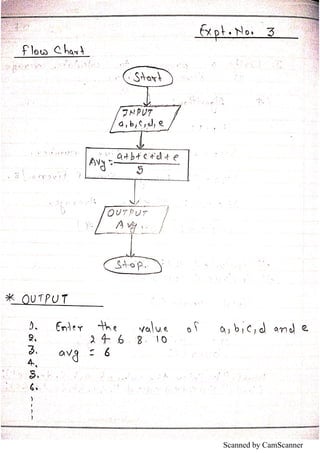 Expt. No. 3
Flow Chart
Start
INPUT
a, b, c, d, e
Avg = a+b+c+d+e
5
OUTPUT
Avg.
Stop.
* OUTPUT
1. Enter the value of a, b, c, d and e
2. 2 4 6 8 10
3. avg = 6
4.
5.
6.
Scanned by CamScanner